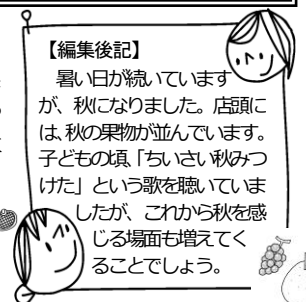 【編集後記】
暑い日が続いています
が、秋になりました。店頭に
は、秋の果物が並んでいます。
子どもの頃、「ちいさい秋みつ
けた」という歌を聴いていま
したが、これから秋を感
じる場面も増えてく
ることでしょう。